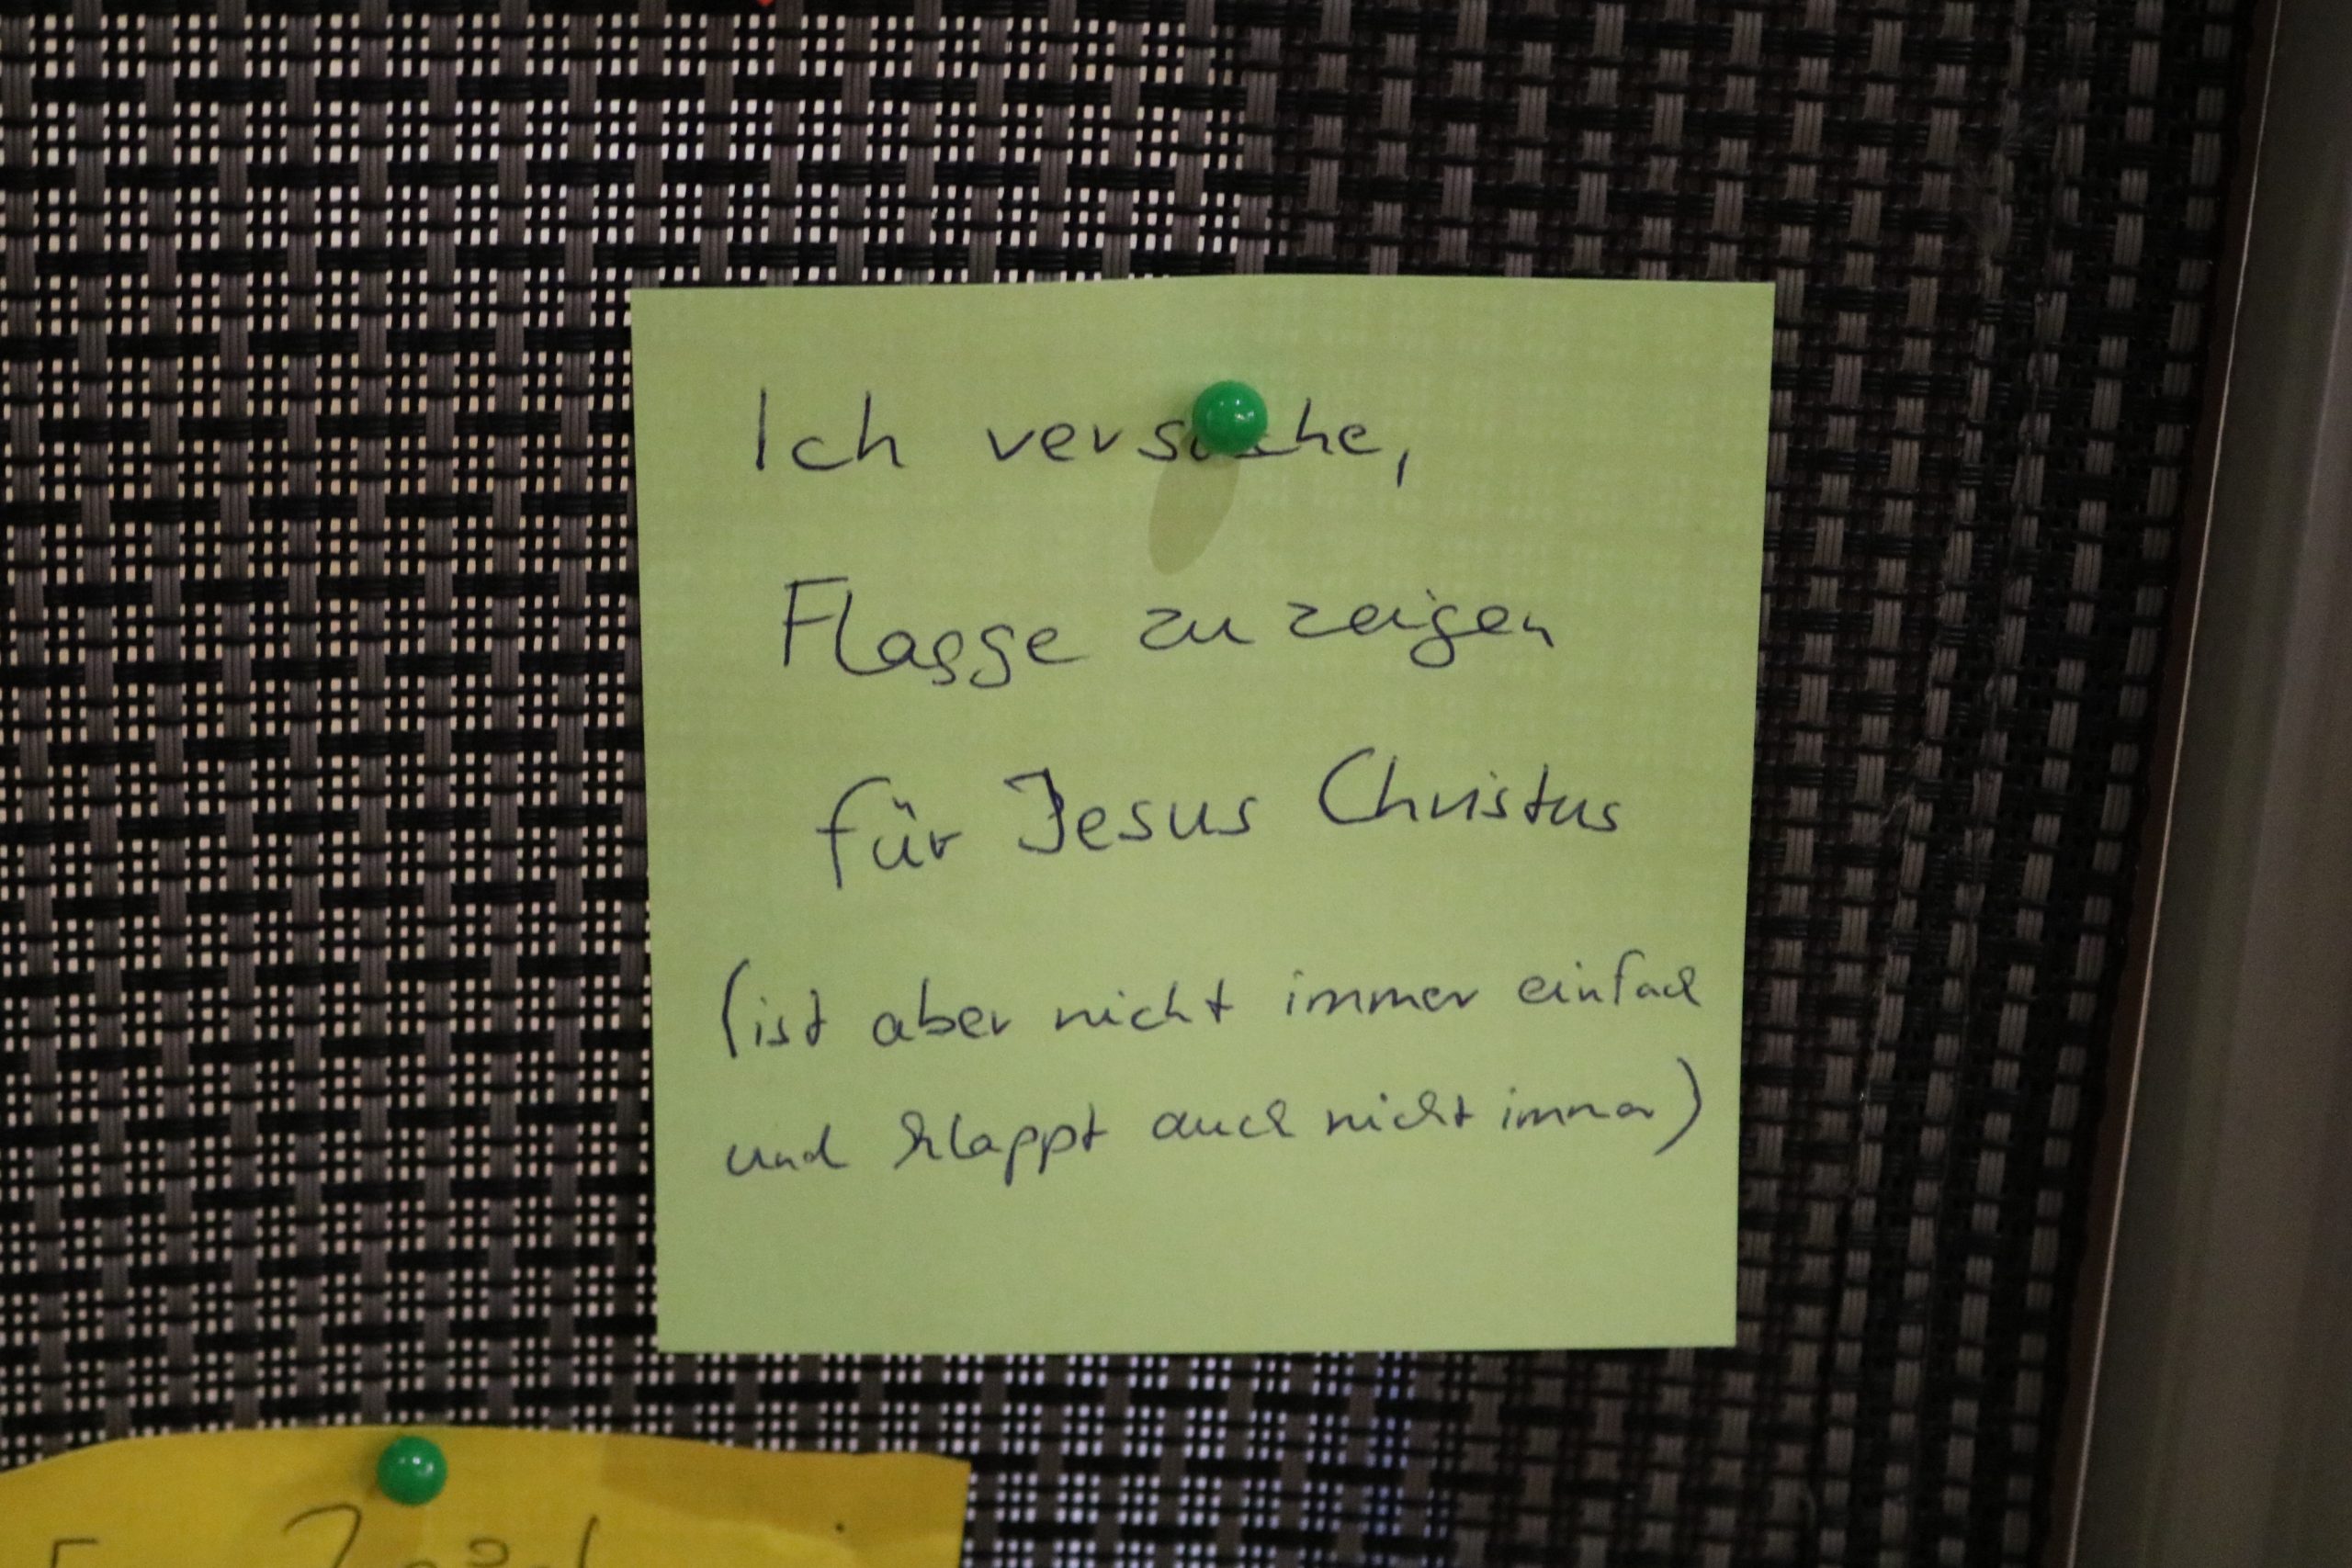 Ich versuche,
Flagge zu zeigen
für Jesus Christus
(ist aber nicht immer einfach
und klappt auch nicht immer)